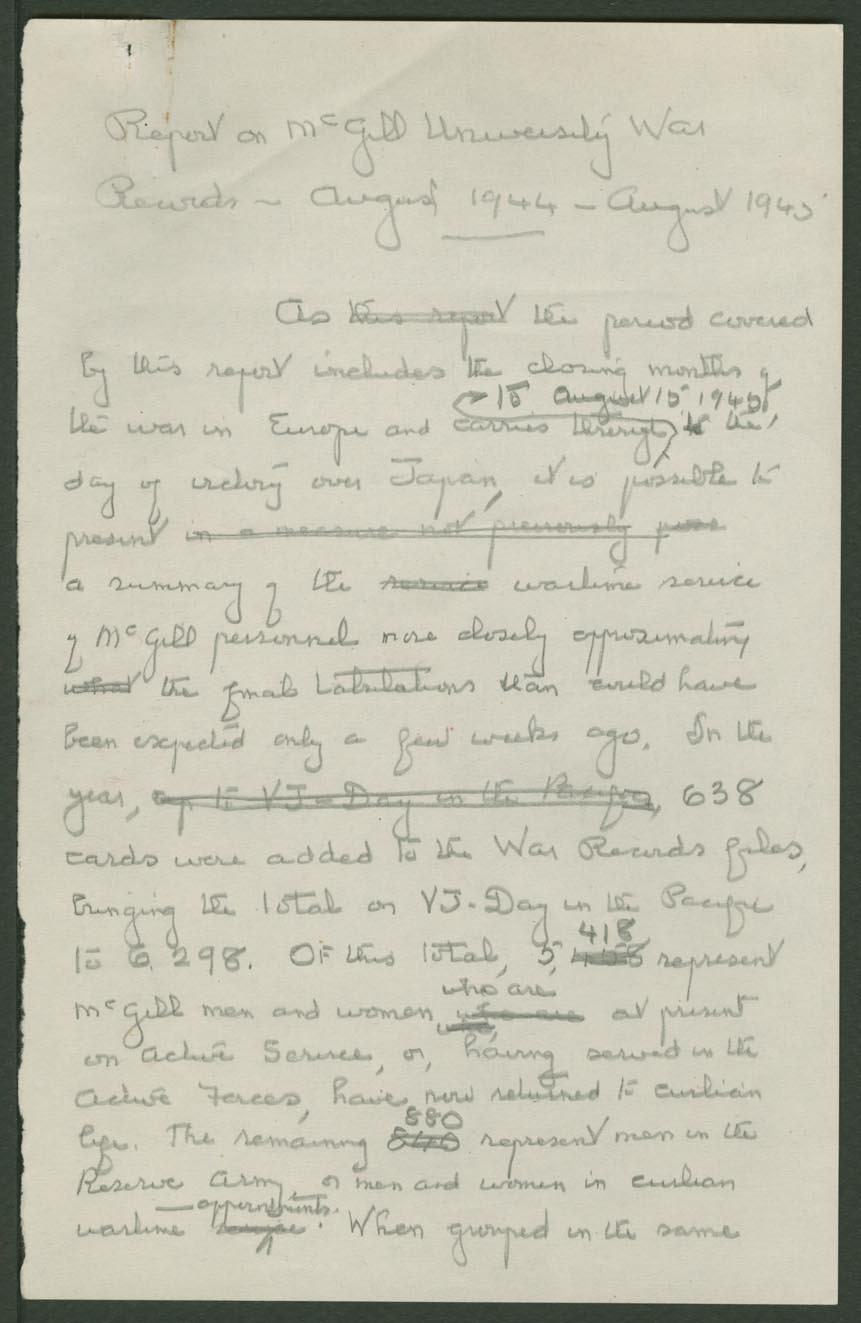 Report on McGill University War
Records – August 1944 – August 1945
As this report the period covered
by this report includes the closing months of
to August 15 1945
the war in Europe and carries through to the
day of victory over Japan, it is possible to
present in a measure not previously poss
a summary of the service wartime service
of McGill personnel more closely approximating
what the final tabulations than could have
been expected only a few weeks ago. In the
year, up to VJ-Day in the Pacific, 638
cards were added to the War Records files,
bringing the total on VJ-Day in the Pacific
418
to 6,298. Of this total, 5, represent
who are
McGill men and women who are at present
who,
on Active Service, or, having served in the
Active Forces, have now returned to civilian
880
life. The remaining 840 represent men in the
Reserve Army or men and women in civilian
appointments.
wartime . When grouped in the same